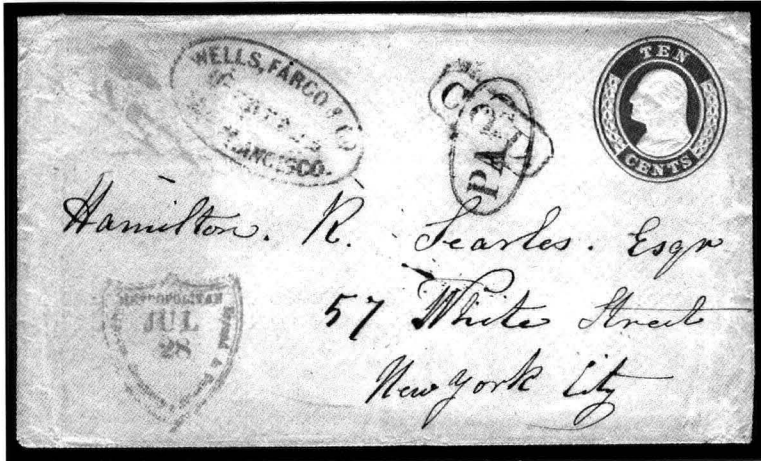 WELLS, FARGO & CO
FRANCISCO.
TEN
CENTS
COPY
PAI
Hamilton. R. Searles. Esqr
57 White Street
New York City
METROPOLITAN
JUL
28